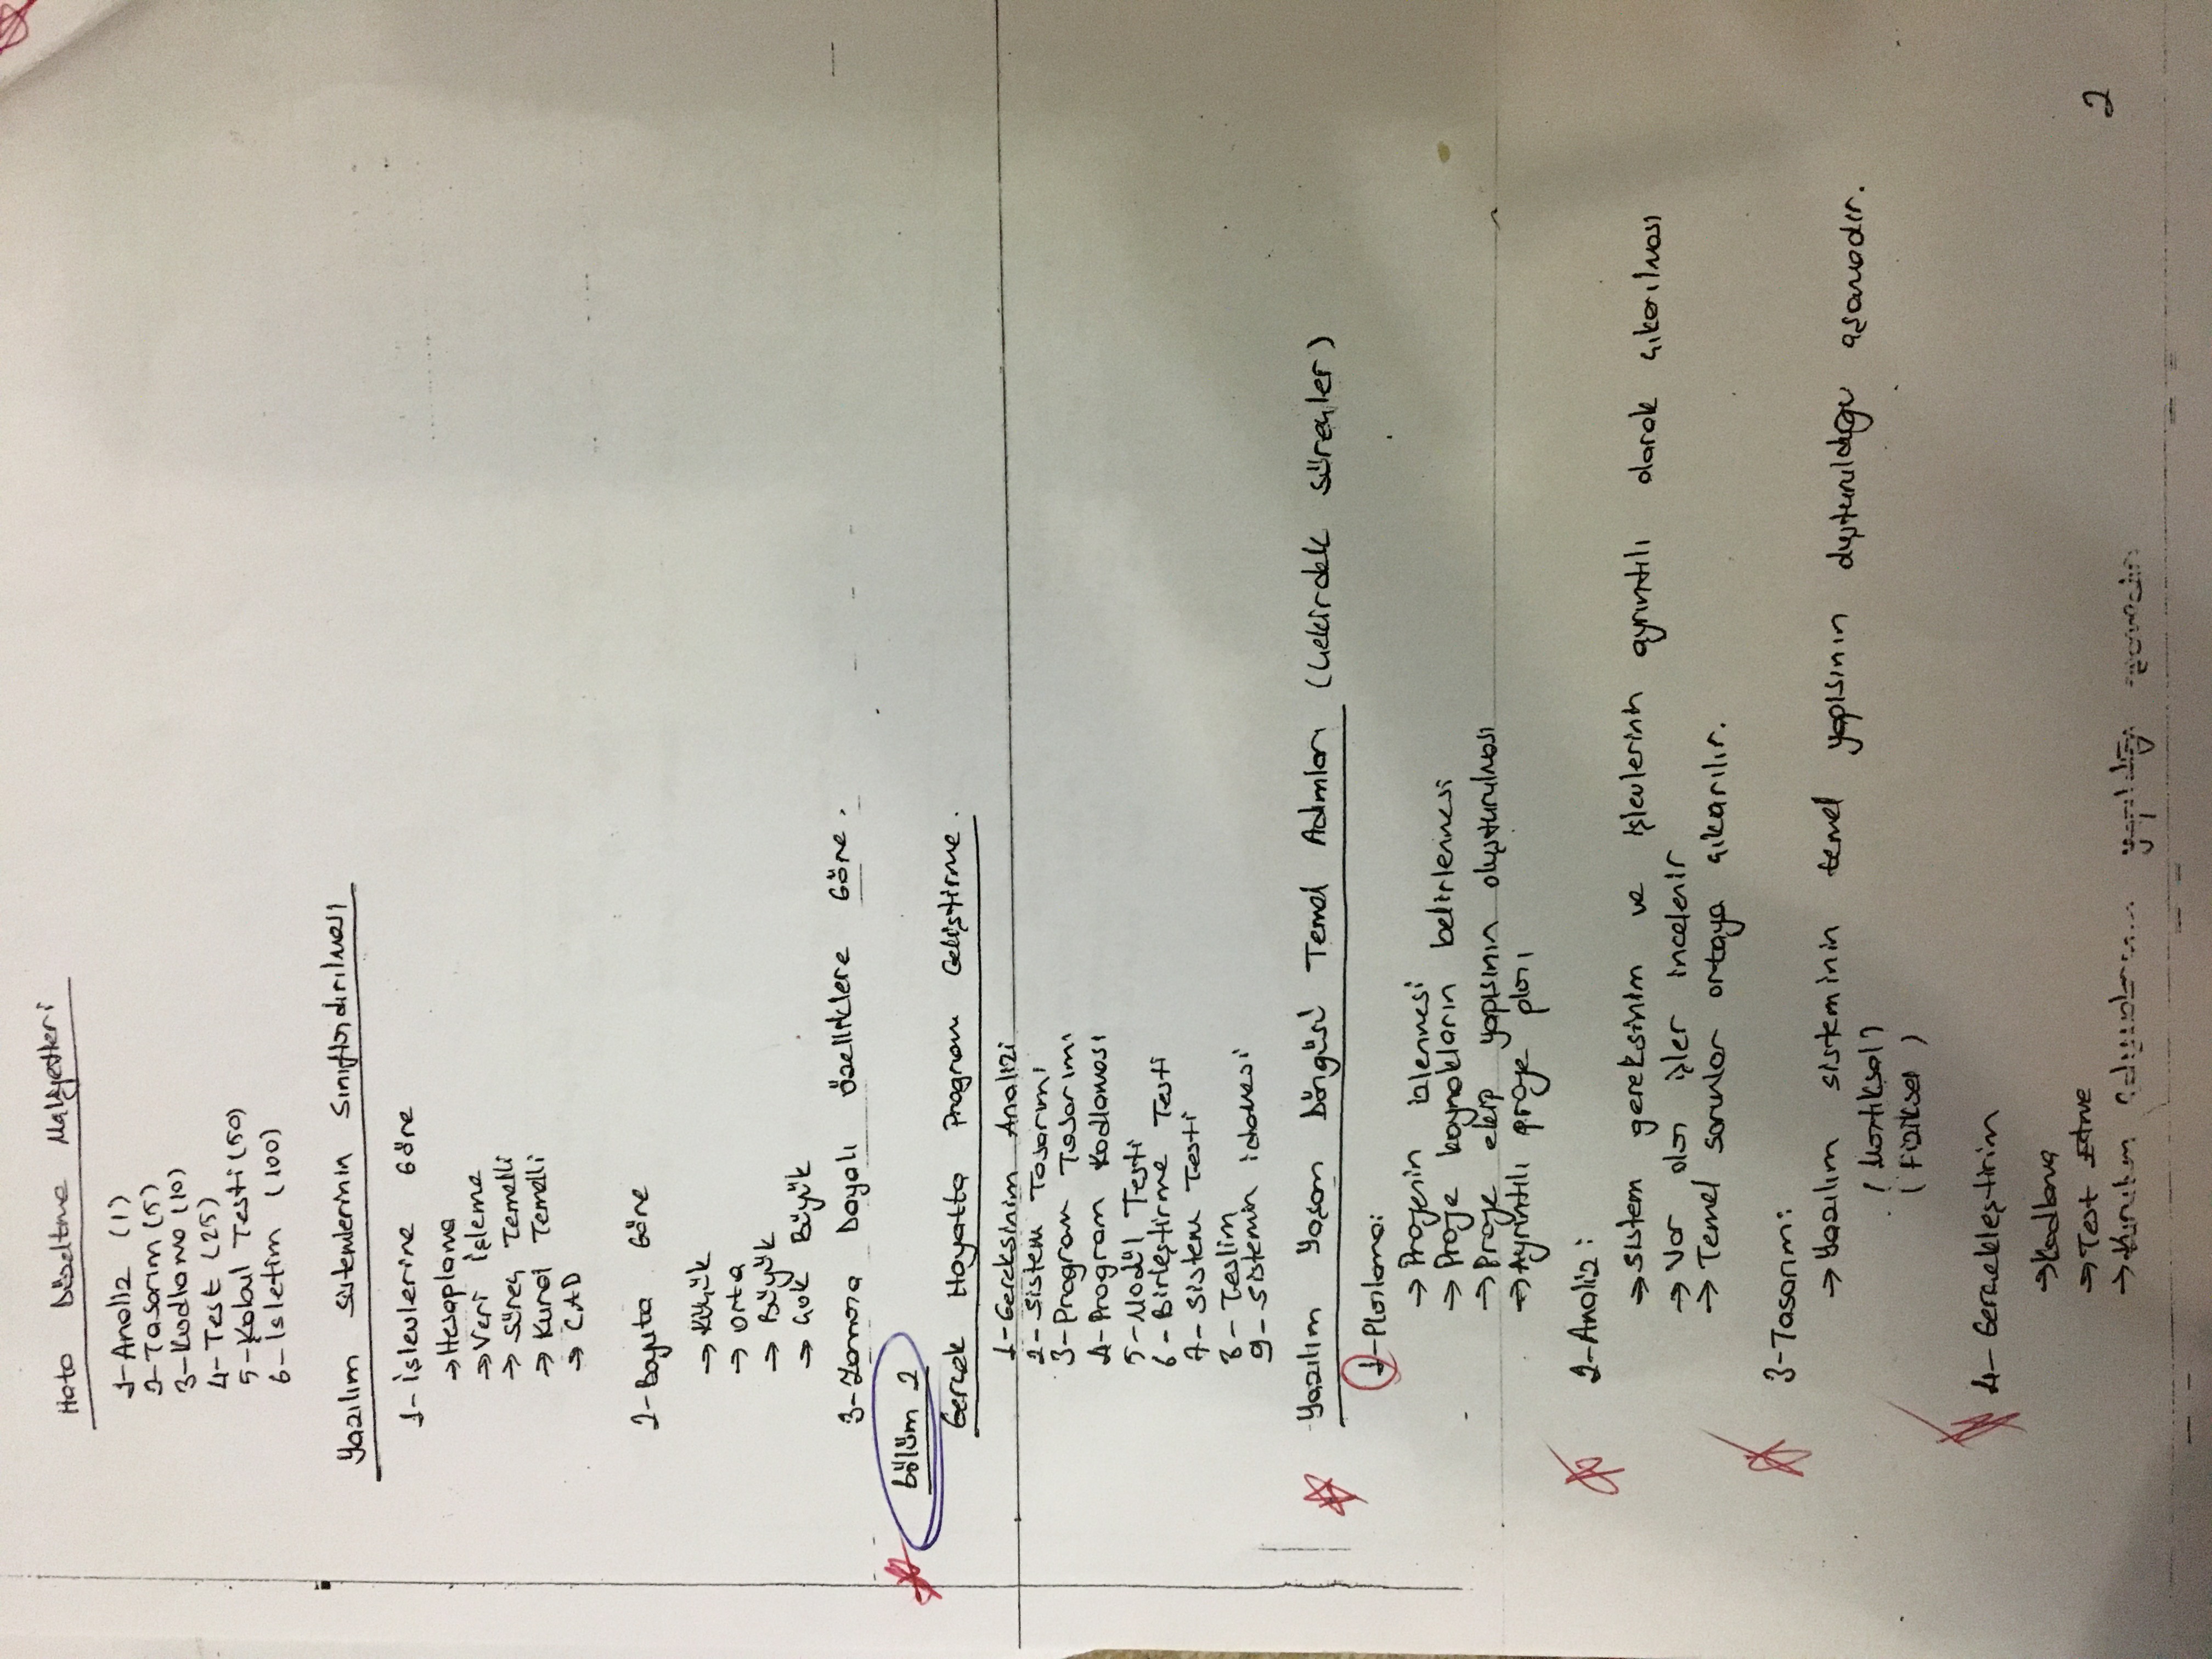 Hata Düzeltme Maliyetleri
1-Analiz (1)
2-Tasarım (5)
3-Kodlama (10)
4-Test (25)
5-Kabul Testi (50)
6-İsletim (100)
Yazılım Sistemlerinin Sınıflandırılması
1-İşlevlerine Göre
→Hesaplama
→Veri İşleme
→ Süreç Temelli
→ Kural Temelli
→ CAD
2-Boyuta Göre
→ Küçük
→ Orta
→ Büyük
→ Çok Büyük
3-Zamana Dayalı Özelliklere Göre.
bölüm 2
Gerçek Hayatta Program Geliştirme.
1-Gereksinim Analizi
2-Sistem Tasarımı
3-Program Tasarımı
4-Program Kodlaması
5-Modül Testi
6-Birleştirme Testi
7-Sistem Testi
8-Teslim
9-Sistemin idamesi
Yazılım Yaşam Döngüsü Temel Adımları (Çekirdek Süreçler)
1-Planlama:
→ Projenin izlenmesi
→ Proje kaynakların belirlenmesi
→ Proje ekip yapısının oluşturulması
→ Ayrıntılı proje planı
2-Analiz:
→ Sistem gereksinim ve işlevlerinin ayrıntılı olarak çıkarılması
→ Var olan işler incelenir
→ Temel sorunlar ortaya çıkarılır.
3-Tasarım:
→ Yazılım sisteminin temel yapısının oluşturulduğu aşamadır.
(Mantıksal)
(Fiziksel)
4-Gerçekleştirim
→Kodlama
→Test Etme
→Kurulum çalışmalarının yapıldığı aşamadır
2